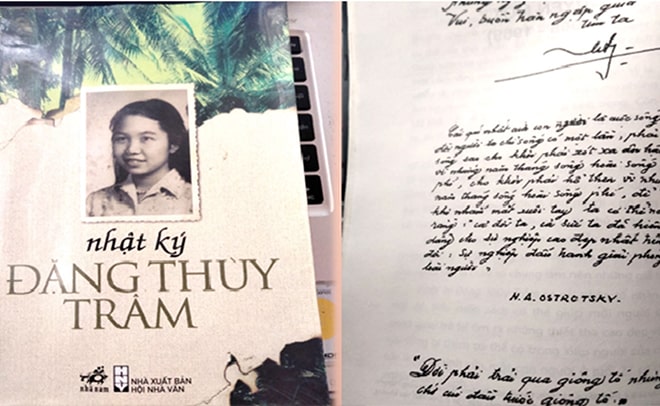 nhật ký
ĐẶNG THÙY
TRÂM
nhã nam
NHÀ XUẤT BẢN
HỘI NHÀ VĂN
Vui, buồn tràn ngập giữa
tim ta
Cái quí nhất của con người là cuộc sống
đời người ta chỉ sống có một lần, phải
sống sao cho khỏi phải xót xa
vì những năm tháng sống hoài sống
phí, cho khỏi phải hổ thẹn vì
năm tháng sống hoài sống phí, để
khi nhắm mắt xuôi tay ta có thể
rằng: cả đời ta, cả sức ta đã hiến
dâng cho sự nghiệp cao đẹp nhất
đời: sự nghiệp đấu tranh giải phóng
loài người"
N.A. OSTROTSKY.
"Đời phải trải qua giông tố
chớ cúi đầu trước giông tố.